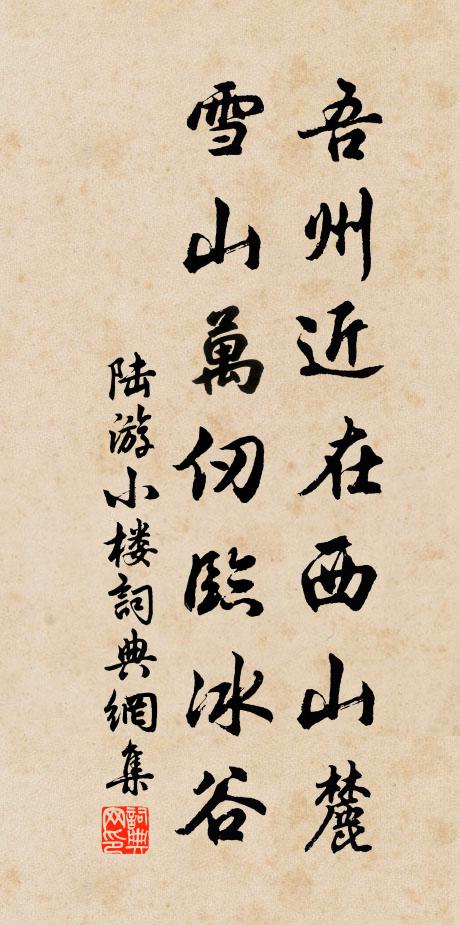 吾州近在西山麓
雪山萬仞臨冰谷
陆游小楼詞典網集
詞典
网印